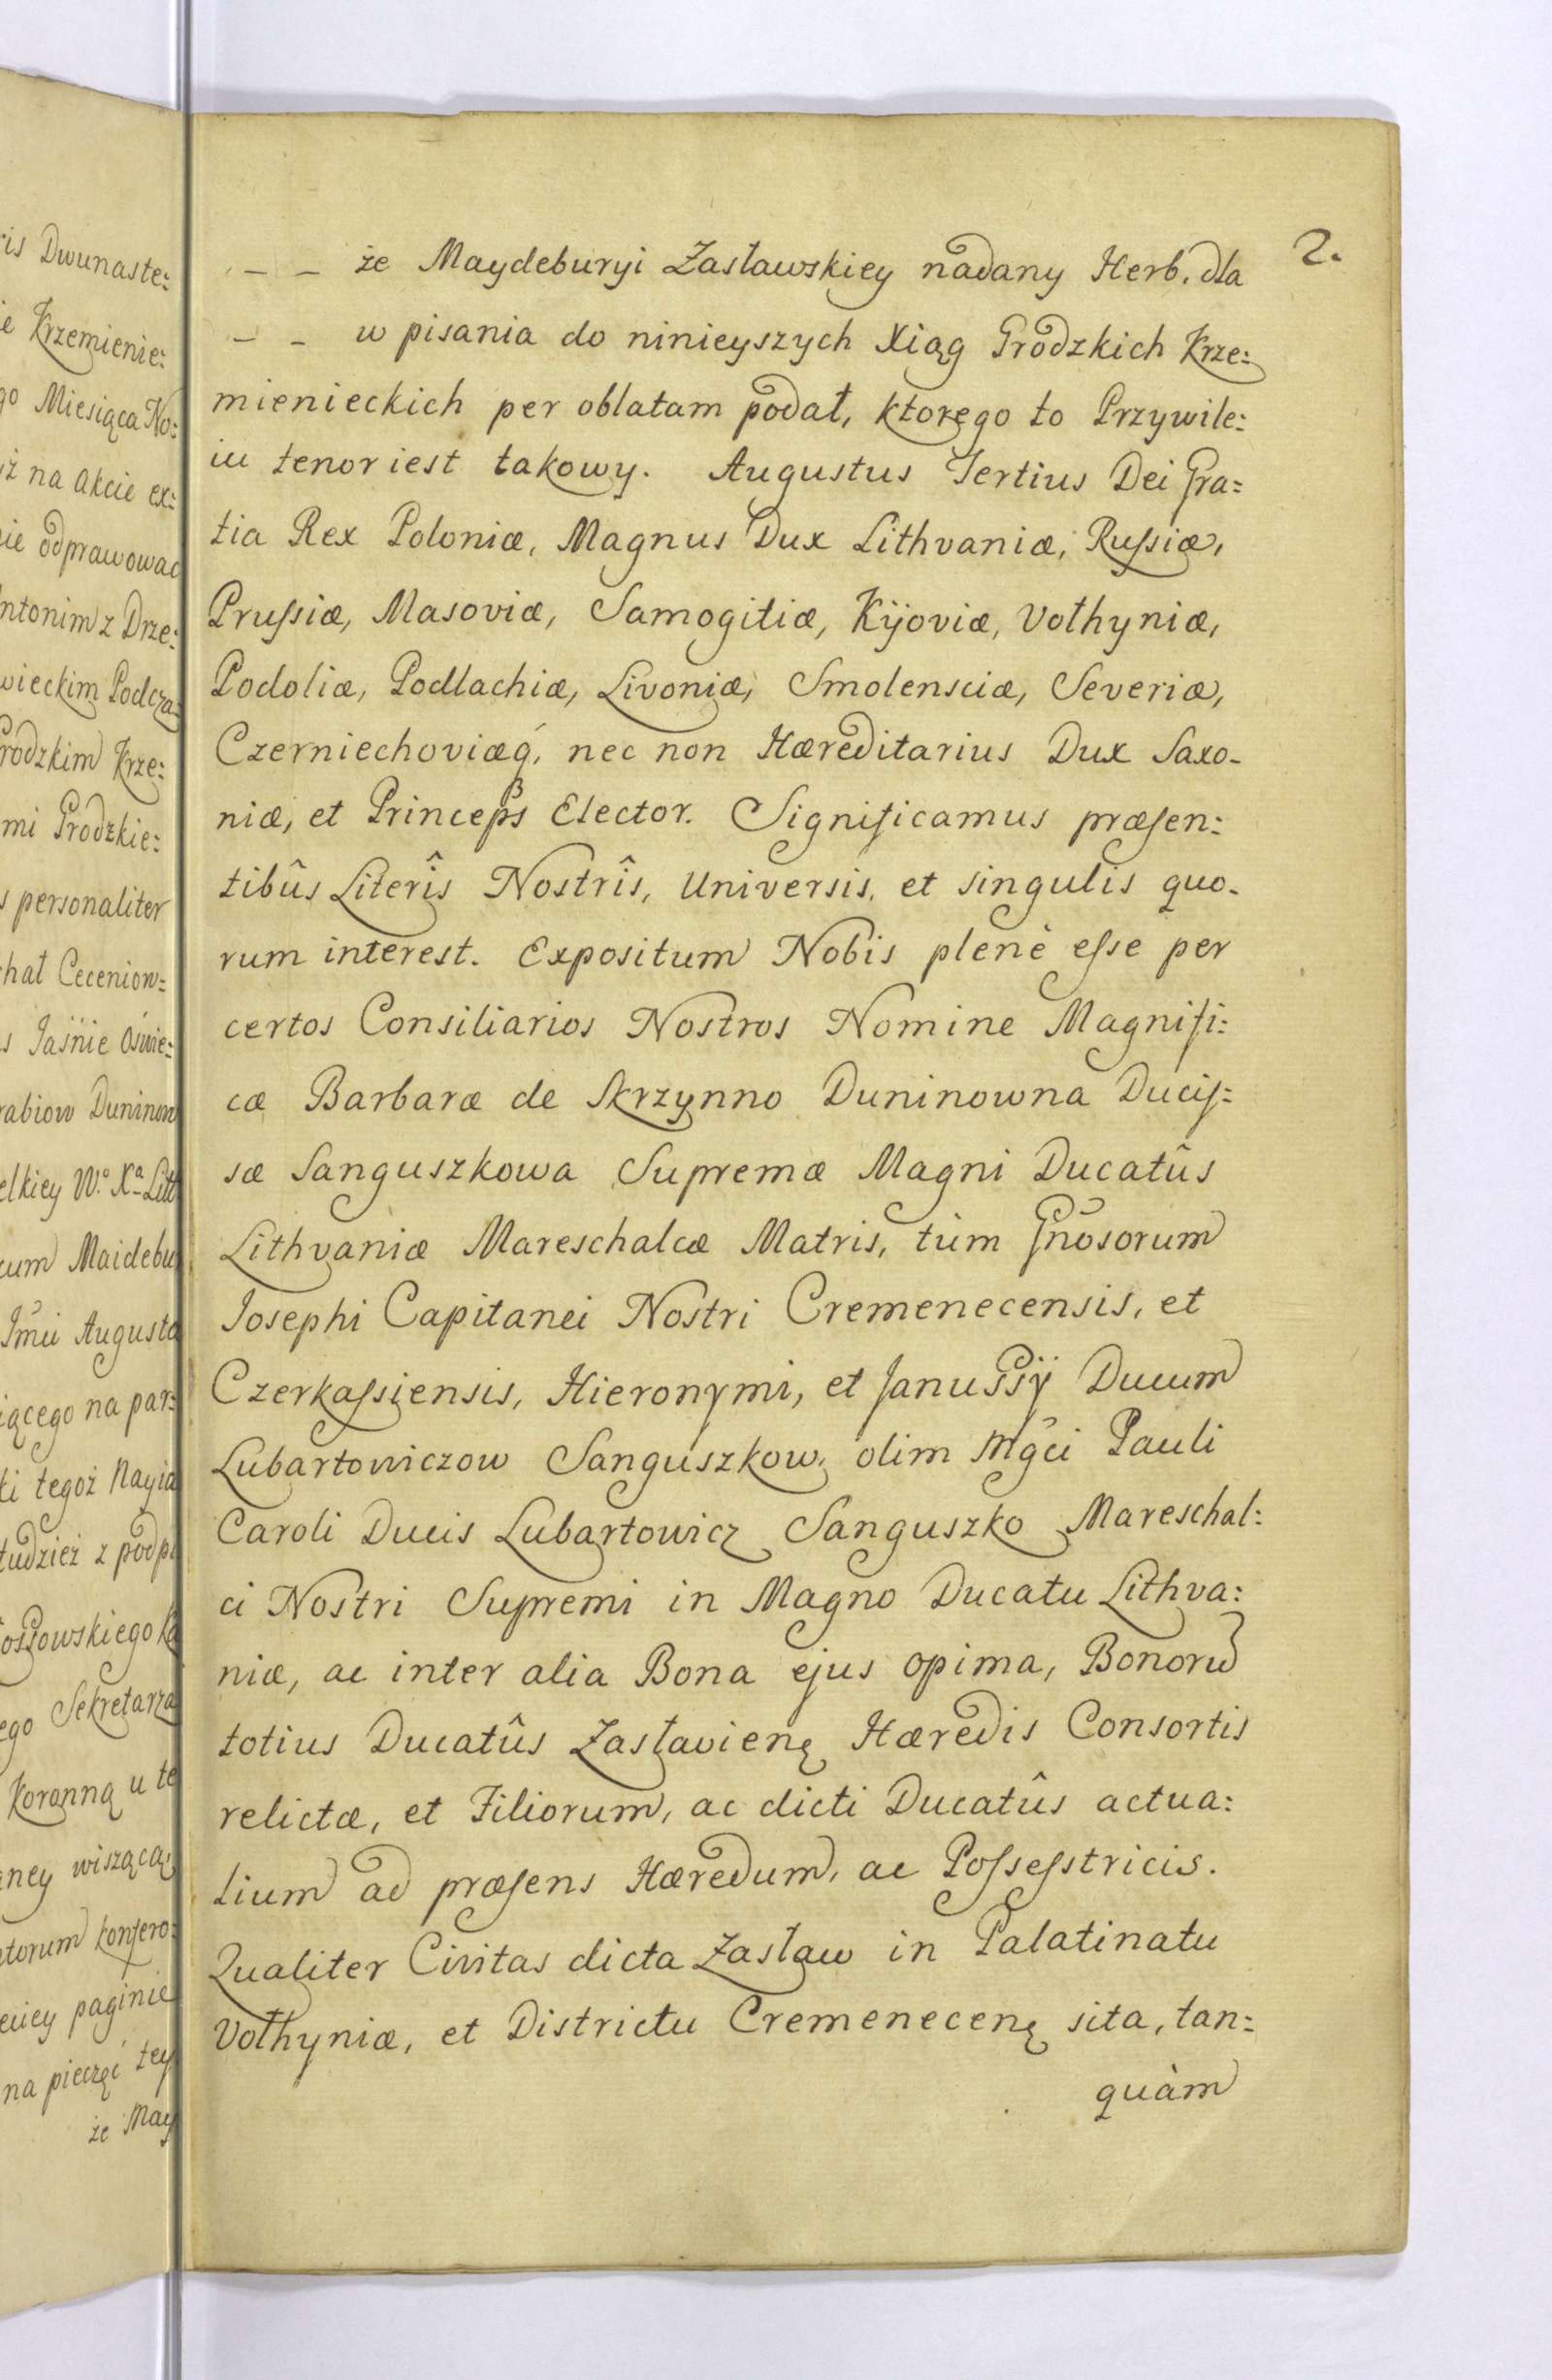 2.
– – że Maydeburyi Zasławskiey nadany Herb, dla
– – w pisania do ninieyszych Xiąg Grodzkich Krze:
mienieckich per oblatam podał, ktorego to Przywile:
iu tenor iest takowy. Augustus Tertius Dei Gra:
tia Rex Poloniæ, Magnus Dux Lithvaniæ, Rußiæ,
Prußiæ, Masoviæ, Samogitiæ, Kijoviæ, Vołhyniæ,
Podoliæ, Podlachiæ, Livoniæ, Smolensciæ, Severiæ,
Czerniechoviæq́, nec non Hæreditarius Dux Saxo-
niæ, et Princeps Elector. Significamus præsen:
tibûs Literîs Nostrîs, Universis, et singulis quo-
rum interest. Expositum Nobis plenè eße per
certos Consiliarios Nostros Nomine Magnifi:
cæ Barbaræ de Skrzynno Duninowna Ducis:
sæ Sanguszkowa Supremæ Magni Ducatûs
Lithvaniæ Mareschalcæ Matris, tùm Gnõsorum
Josephi Capitanei Nostri Cremenecensis, et
Czerkaßiensis, Hieronymi, et Janußÿ Ducum
Lubartowiczow Sanguszkow, olim Mg̃ci Pauli
Caroli Ducis Lubartowicz Sanguszko Mareschal:
ci Nostri Supremi in Magno Ducatu Lithva:
niæ, ac inter alia Bona ejus opima, Bonorũ
totius Ducatûs Zasłavienę Hæredis Consortis
relictæ, et Filiorum, ac dicti Ducatûs actua:
lium ad præsens Hæredum, ac Poßeßtricis.
Qualiter Civitas dicta Zasław in Palatinatu
Vołhyniæ, et Districtu Cremenecenę sita, tan:
quàm
is Dwunaste:
ie Krzemienie:
go Miesiąca No:
iż na akcie ex:
nie odprawowac
ntonim z Drze:
wieckim Podcza
rodzkim Krze:
mi Grodzkie:
s personaliter
hał Ceceniow:
s Jaśnie Oświe:
rabiow Duninow
elkiey W.º Xª Litt
cum Maidebu
Jmci Augusta
iącego na par:
ki tegoż Nayia
tudzież z podpi
ego Sekretarza
Koronną u te
ney wiszącą
torum konfero:
paginie
na pieczęci tey
że May